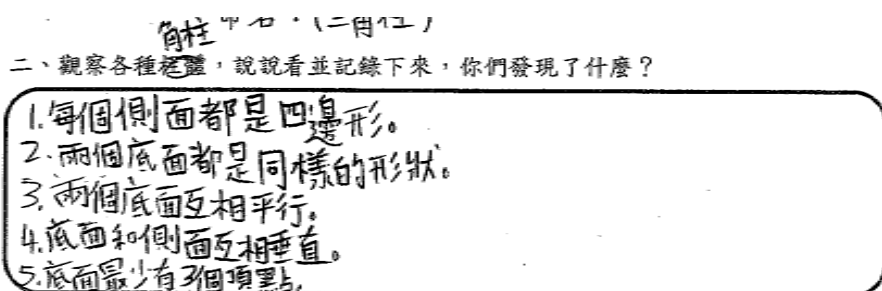 角柱
二、觀察各種柱體，說說看並記錄下來，你們發現了什麼？
1.每個側面都是四邊形。
2.兩個底面都是同樣的形狀。
3.兩個底面互相平行。
4.底面和側面互相垂直。
5.底面最少有3個頂點.